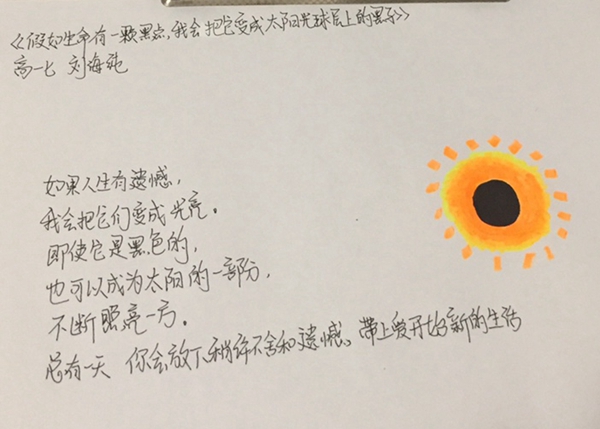 《假如生命有一颗黑点,我会把它变成太阳光球层上的黑子》
高一七 刘海
如果人生有遗憾,
我会把它们变成光亮。
即使它是黑色的,
也可以成为太阳的一部分,
不断照亮一方。
总有一天 你会放下稍许不舍和遗憾。带上爱开始新的生活